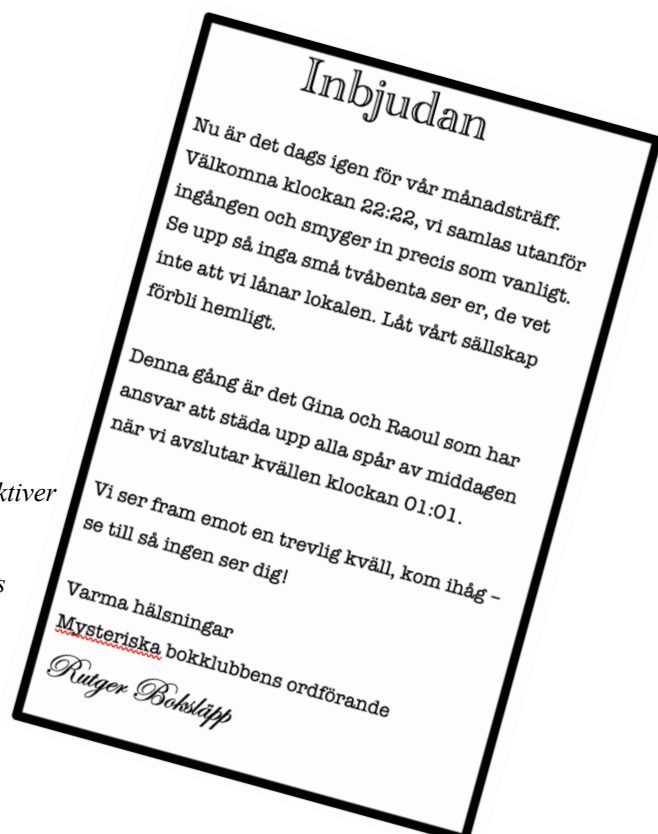 Inbjudan
Nu är det dags igen för vår månadsträff.
Välkomna klockan 22:22, vi samlas utanför
ingången och smyger in precis som vanligt.
Se upp så inga små tvåbenta ser er, de vet
inte att vi lånar lokalen. Låt vårt sällskap
förbli hemligt.
Denna gång är det Gina och Raoul som har
ansvar att städa upp alla spår av middagen
när vi avslutar kvällen klockan 01:01.
Vi ser fram emot en trevlig kväll, kom ihåg –
se till så ingen ser dig!
Varma hälsningar
Mysteriska bokklubbens ordförande
Rutger Boksläpp
ktiver
s